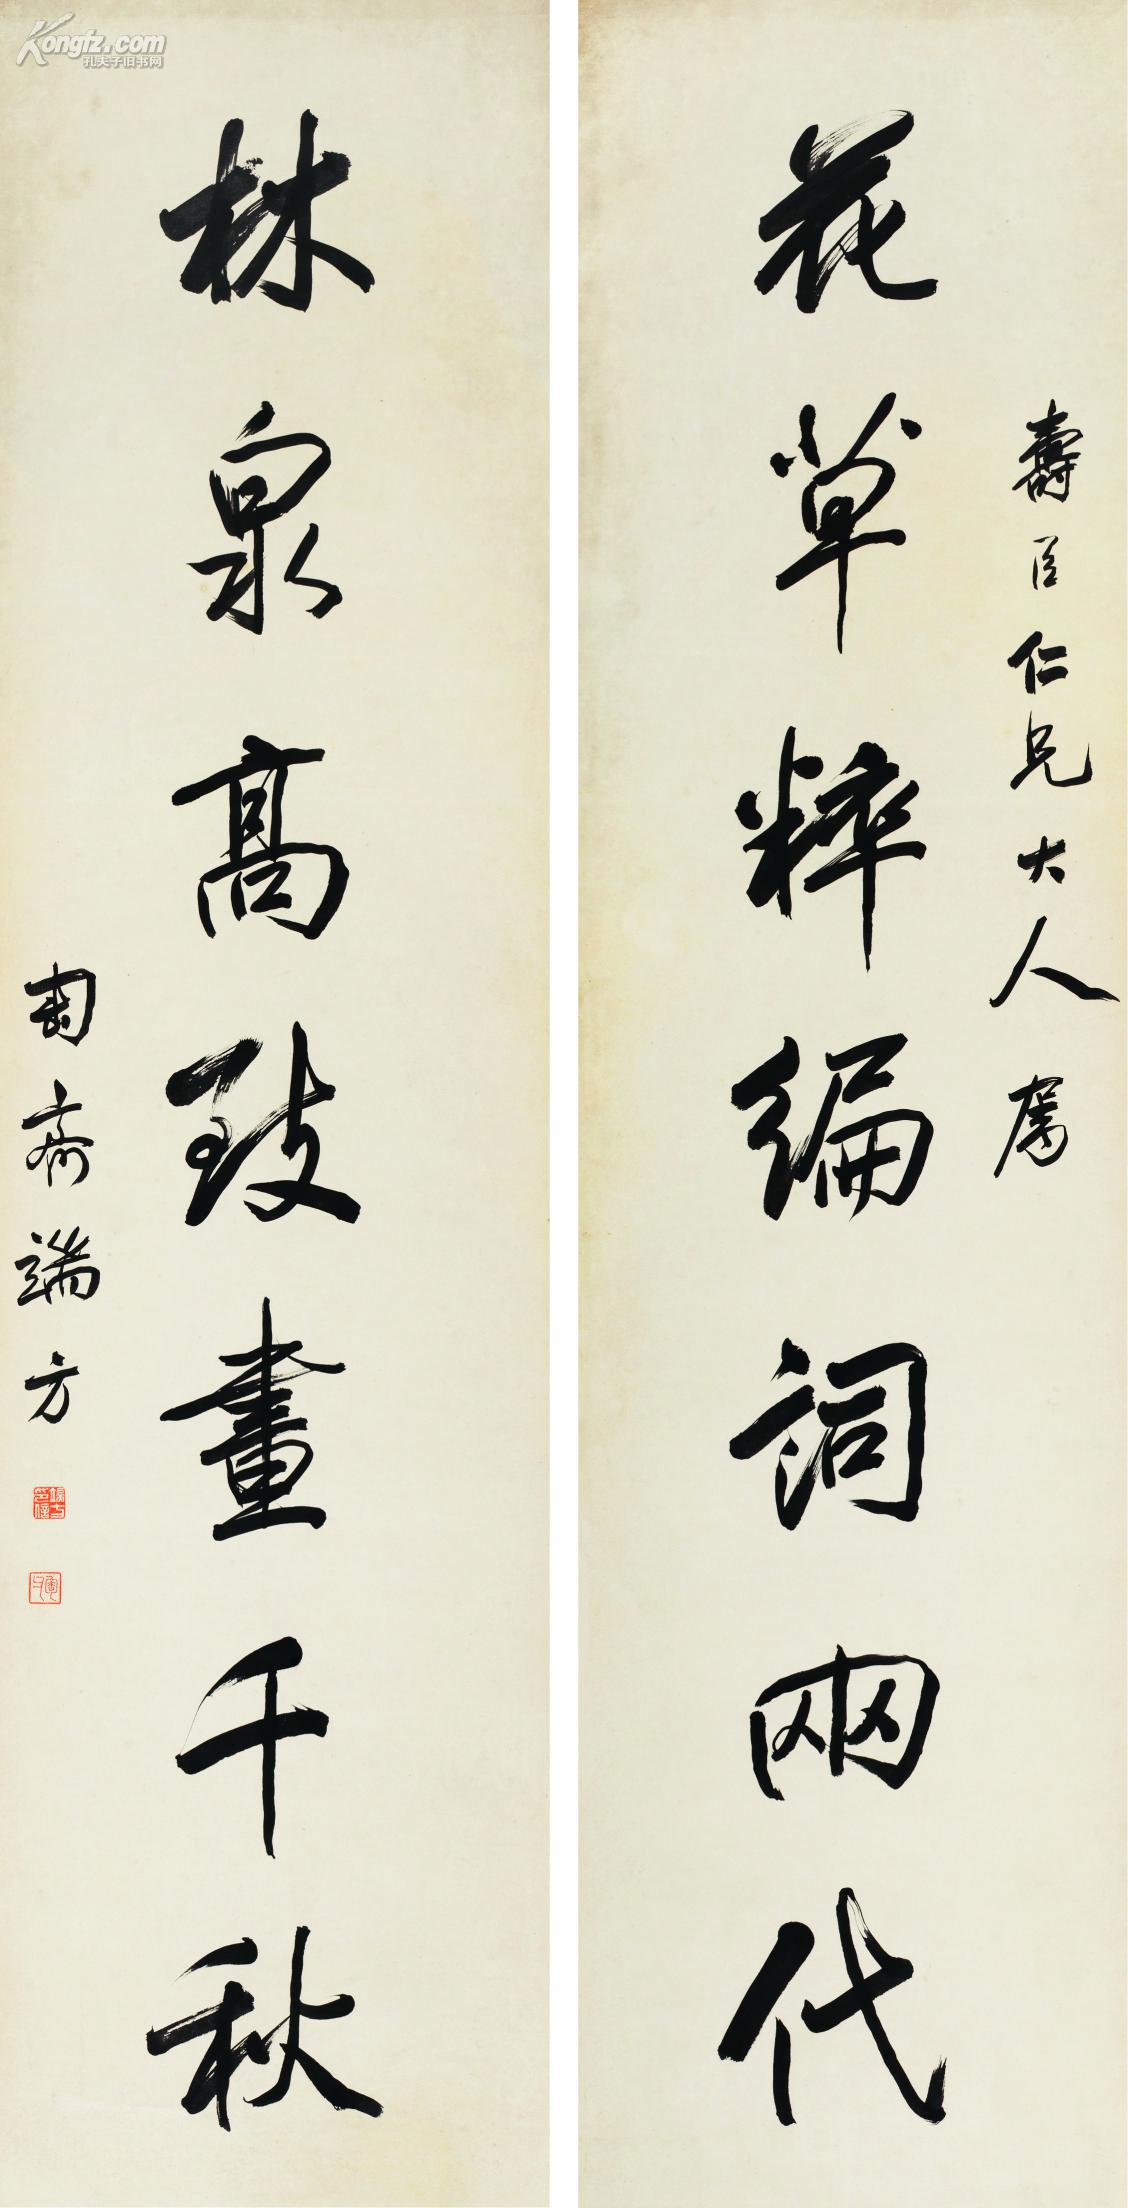 花草粹編詞兩代
壽臣仁兄大人属
林泉高致畫千秋
匋齋端方
端方印信
Kongfz.com
孔夫子旧书网